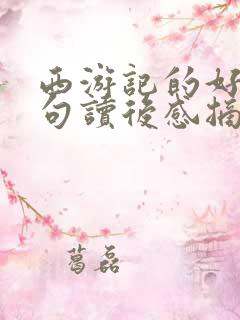 西游記的好
句讀後感摘
葛磊